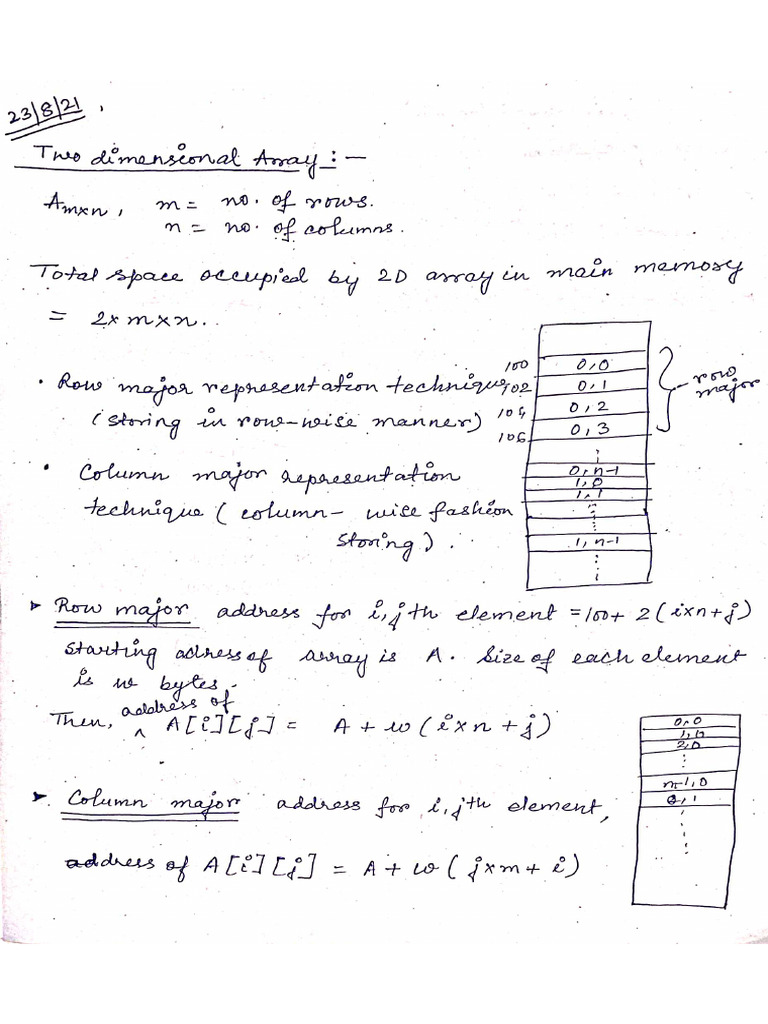 23/8/21,
Two dimensional Array :-
Amxn, m = no. of rows.
n = no. of columns.
Total space occupied by 2D array in main memory
= 2xmxn..
• Row major representation technique
(storing in row-wise manner)
• Column major representation
technique (column- wise fashion
storing).
100 0,0
102 0,1
104 0,2
106 0,3
row
major
0,n-1
1,0
1,1
1,n-1
➤ Row major address for i,jth element = 100 + 2(ixn+j)
starting adress of array is A. Size of each element
is w bytes.
Then, address of A[i][j] = A + w(ixn+j)
0,0
1,0
2,0
m-1,0
0,1
➤ Column major address for i,jth element,
address of A[i][j] = A + w(jxm+i)